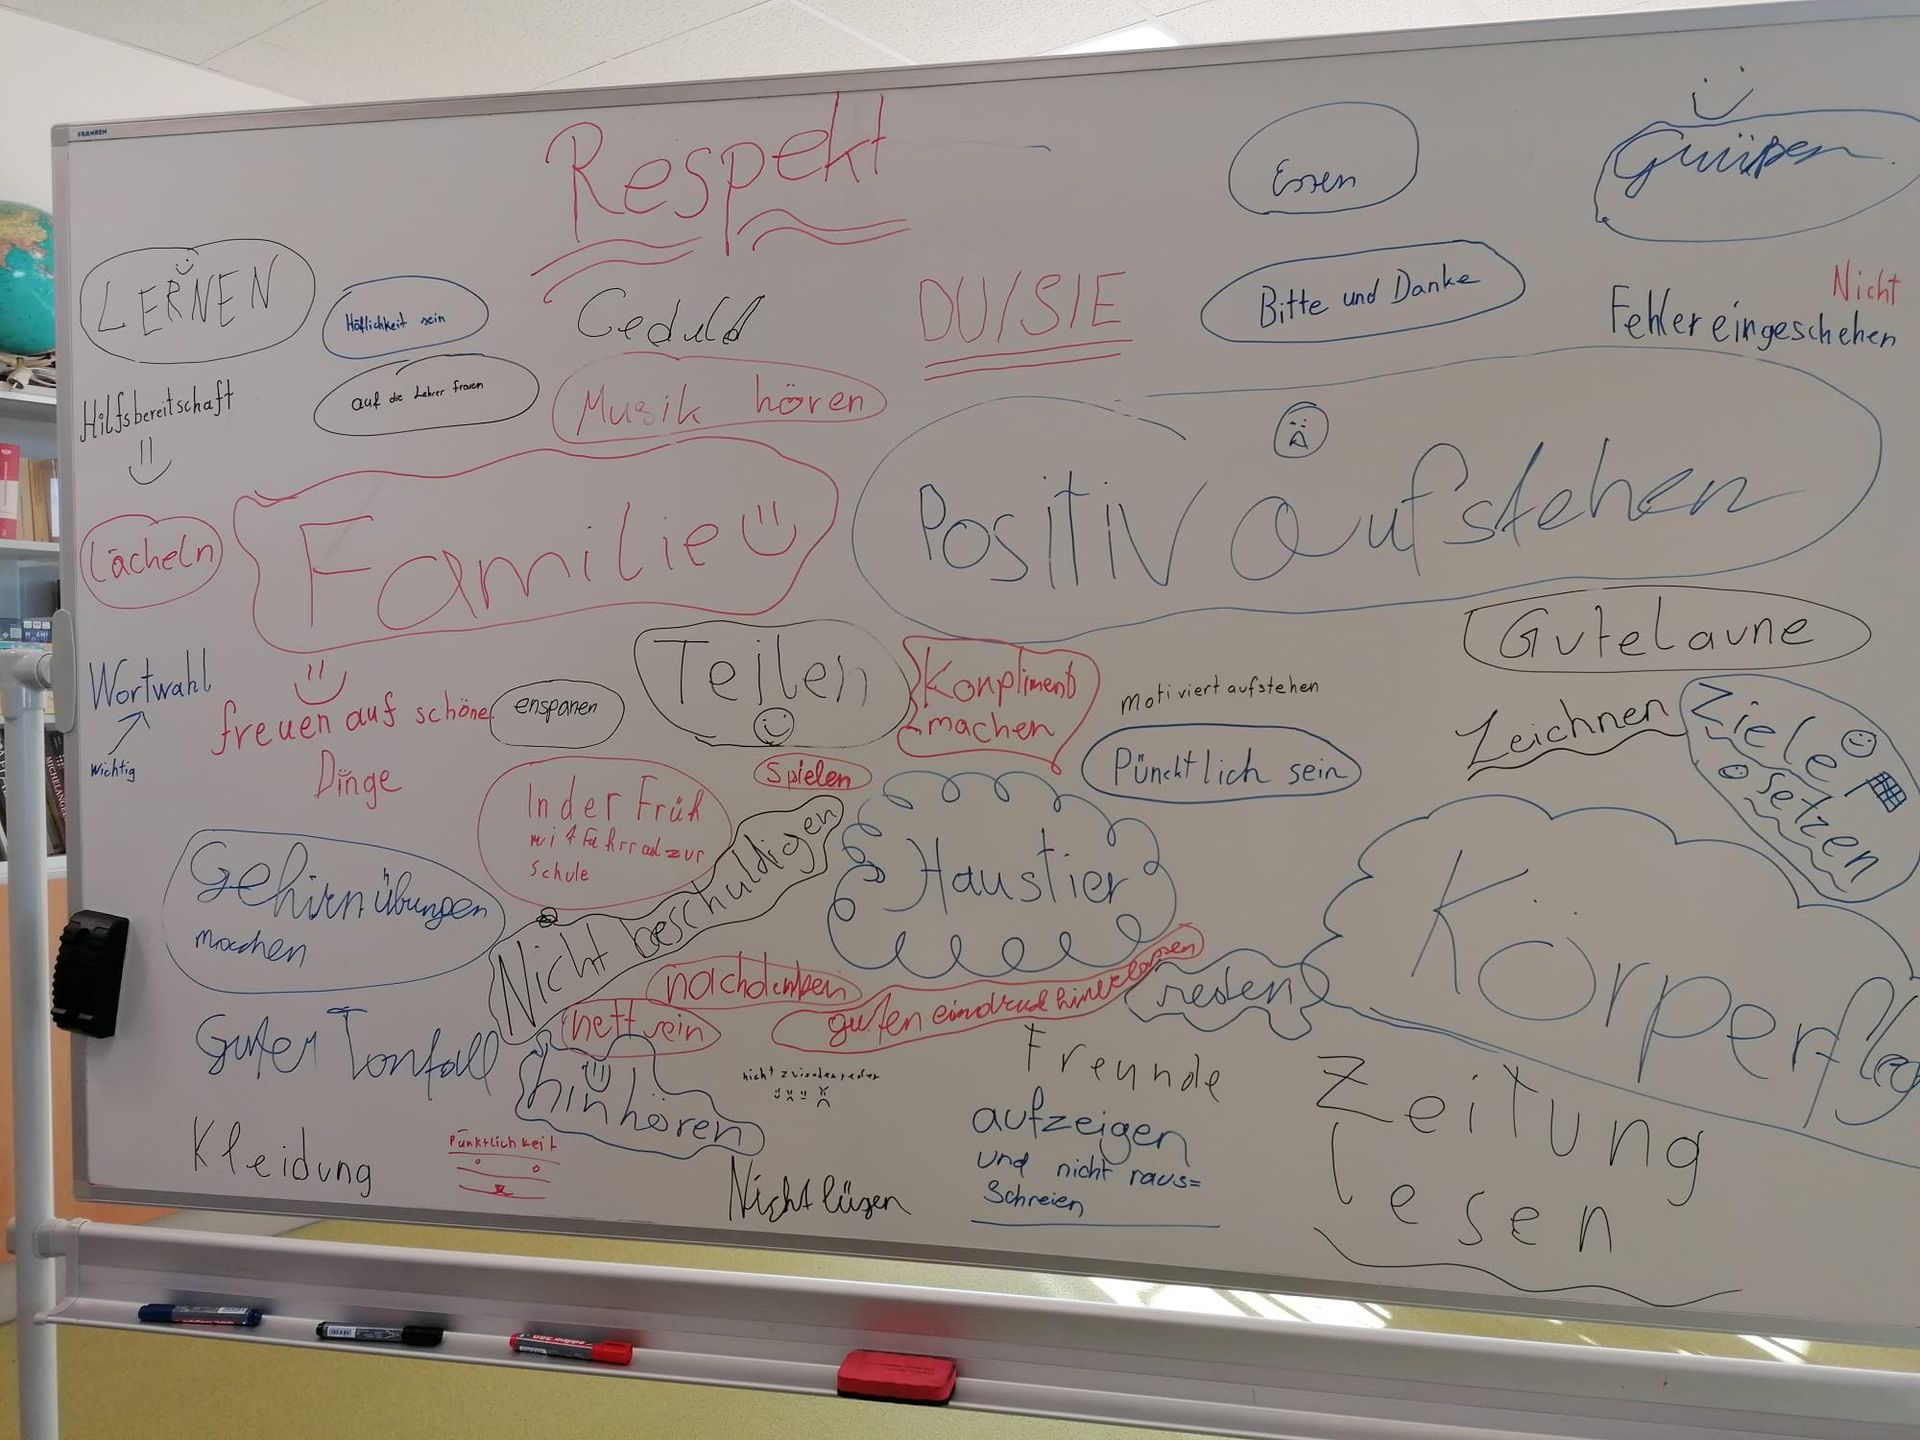 FRANKEN
Respekt
Essen
LERNEN
Höflichkeit sein
Geduld
DU/SIE
Bitte und Danke
Nicht
Fehler eingeschehen
Hilfsbereitschaft
auf die Lehrer freuen
Musik hören
Lächeln
Familie
Positiv aufstehen
Gutelaune
Wortwahl
Wichtig
freuen auf schöne
Dinge
enspanen
Teilen
Kompliment
machen
motiviert aufstehen
Zeichnen
Ziele
setzen
Spielen
Püncktlich sein
In der Früh
mit Fahrrad zur
Schule
Gehirnübungen
machen
Nicht beschuldigen
Haustier
Körperfleg
nachdenken
nett sein
guten eindruck hinterlassen
reden
Guter Tonfall
hinhören
nicht zwischenreden
Freunde
Zeitung
lesen
Kleidung
Pünktlichkeit
Nicht lügen
aufzeigen
und nicht raus=
Schreien